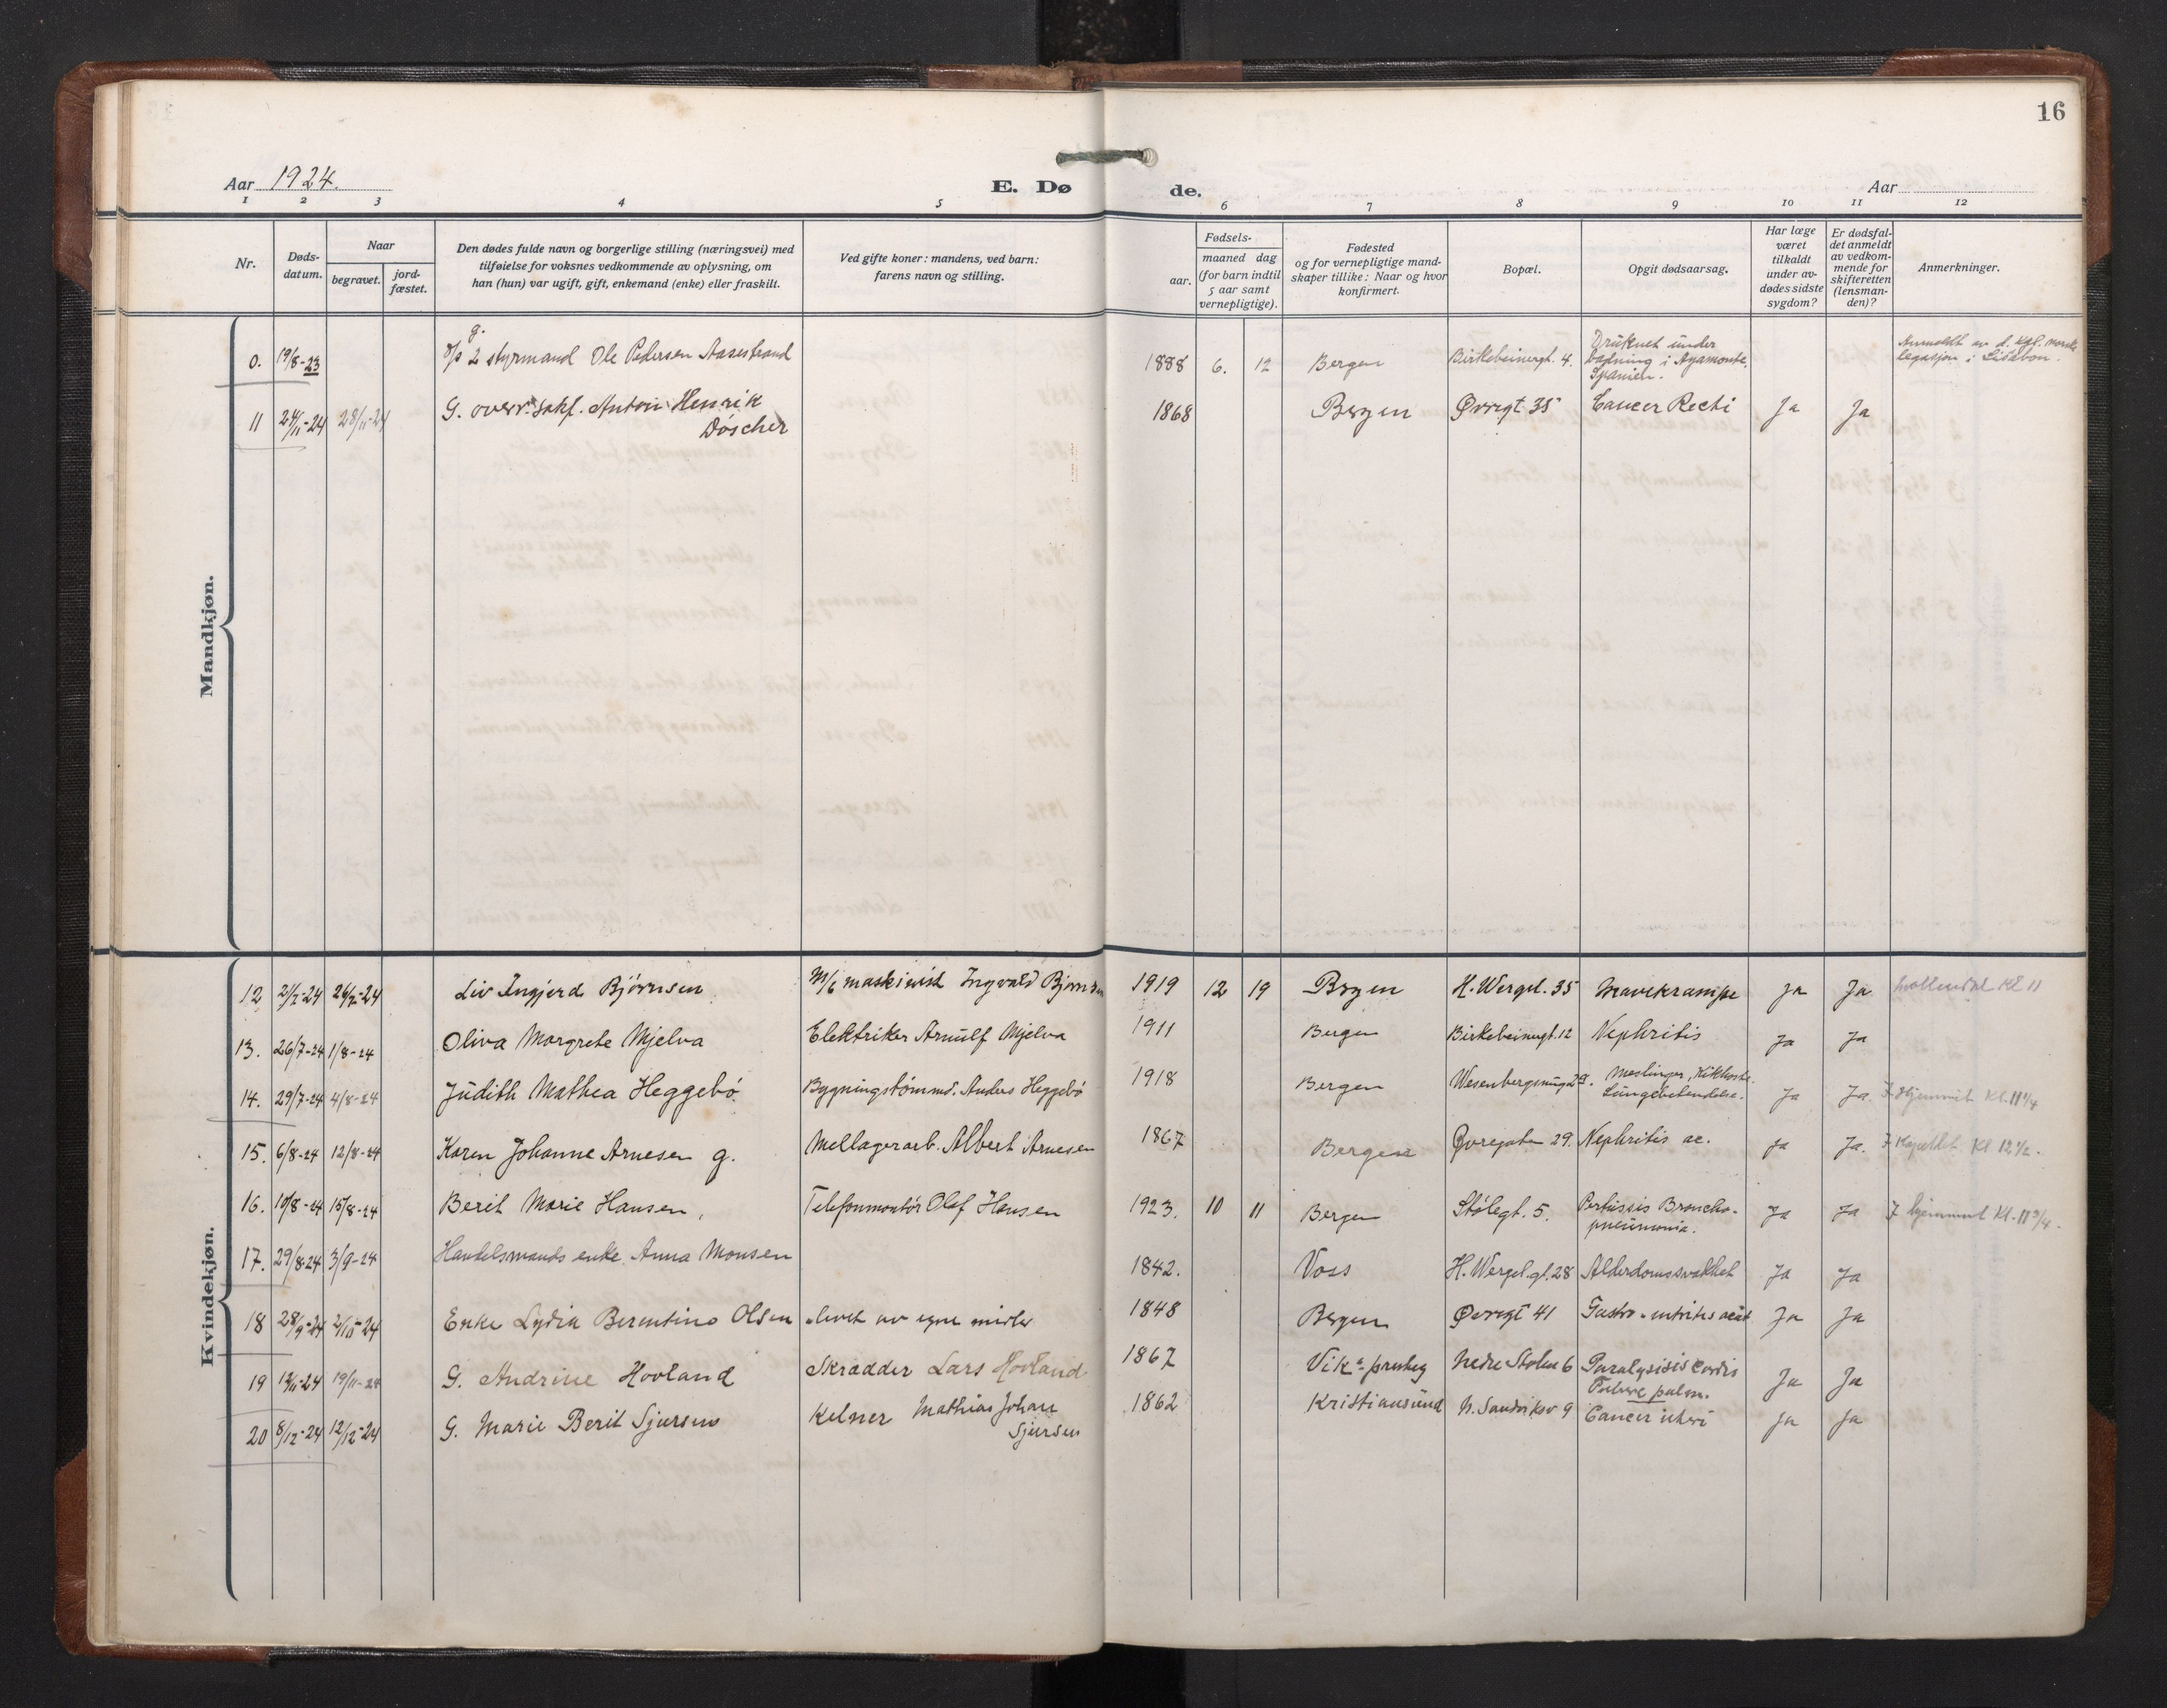 16
Aar 1924.
E. Dø de.
Aar
1 2 3 4 5 6 7 8 9 10 11 12
Nr.
Døds-
datum.
Naar
begravet.
jord-
fæstet.
Den dødes fulde navn og borgerlige stilling (næringsvei) med
tilføielse for voksnes vedkommende av oplysning, om
han (hun) var ugift, gift, enkemand (enke) eller fraskilt.
Ved gifte koner: mandens, ved barn:
farens navn og stilling.
Fødsels-
aar.
maaned dag
(for barn indtil
5 aar samt
vernepligtige).
Fødested
og for vernepligtige mand-
skaper tillike: Naar og hvor
konfirmert.
Bopæl.
Opgit dødsaarsag.
Har læge
været
tilkaldt
under av-
dødes sidste
sygdom?
Er dødsfal-
det anmeldt
av vedkom-
mende for
skifteretten
(lensman-
den)?
Anmerkninger.
Mandkjøn.
0. 19/8-23 g. 2 styrmand Ole Pedersen Aasestrand 1888 6. 12 Bergen Birkebeinergt. 4. Druknet under
badning i Ayamonte,
Spanien.
Anmeldt av d. kgl. norske
legasjon i Lisabon.
11 24/11-24 28/11-24 G. overr.sakf. Anton Henrik
Döscher
1868 Bergen Øvregt 35 Cancer Recti Ja Ja
Kvindekjøn.
12 21/2-24 26/2-24 Liv Ingjerd Bjørnsen M/c maskinist Ingvald Bjørnsen 1919 12 19 Bergen H. Wergel. 35 Mavekrampe Ja Ja Møllendal Kl 11
13. 26/7-24 1/8-24 Oliva Margrete Mjelva Elektriker Arnulf Mjelva 1911 Bergen Birkebeinergt. 12 Nephritis Ja Ja
14. 29/7-24 4/8-24 Judith Mathea Heggebö Bygningstömmd. Anders Heggebö 1918 Bergen Wesenbergsmug 2a. Meslinger, Kikhoste.
Lungebetendelse.
Ja Ja. F. Hjemmet Kl. 11 1/4
15. 6/8-24 12/8-24 Karen Johanne Arnesen g. Mellagerarb. Albert Arnesen 1867 Bergen Øvregaten 29. Nephritis ac. Ja Ja. F Kapellet Kl 12 1/2.
16. 10/8-24 15/8-24 Berit Marie Hansen, Telefonmontör Olaf Hansen 1923. 10 11 Bergen Stölegt. 5. Pertussis Broncho-
pneumonia.
Ja Ja F hjemmet Kl. 11 3/4.
17. 29/8-24 3/9-24 Handelsmands enke Anna Monsen 1842. Voss H. Wergel.gt. 28 Alderdomssvakhet Ja Ja
18 28/9-24 2/10-24 Enke Lydia Berentine Olsen levet av egne midler 1848 Bergen Øvregt 41 Gastro-entritis acut Ja Ja
19 13/11-24 19/11-24 G. Andrine Hovland Skrædder Lars Hovland 1867 Viks presteg Nedre Stölen 6 Paralysisis Cordis
pulm.
Ja Ja
20 8/12-24 12/12-24 G. Marie Berit Sjursen Kelner Mathias Johan
Sjursen
1862 Kristiansund N. Sandviksv 9 Cancer uteri Ja Ja